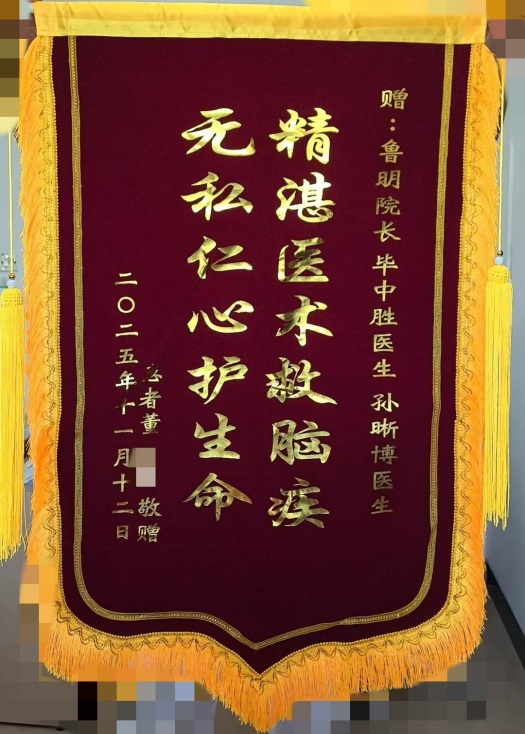 赠：鲁明院长 毕中胜医生 孙晰博医生
精湛医术救脑疾
无私仁心护生命
患者董 敬赠
二〇二五年十一月十二日